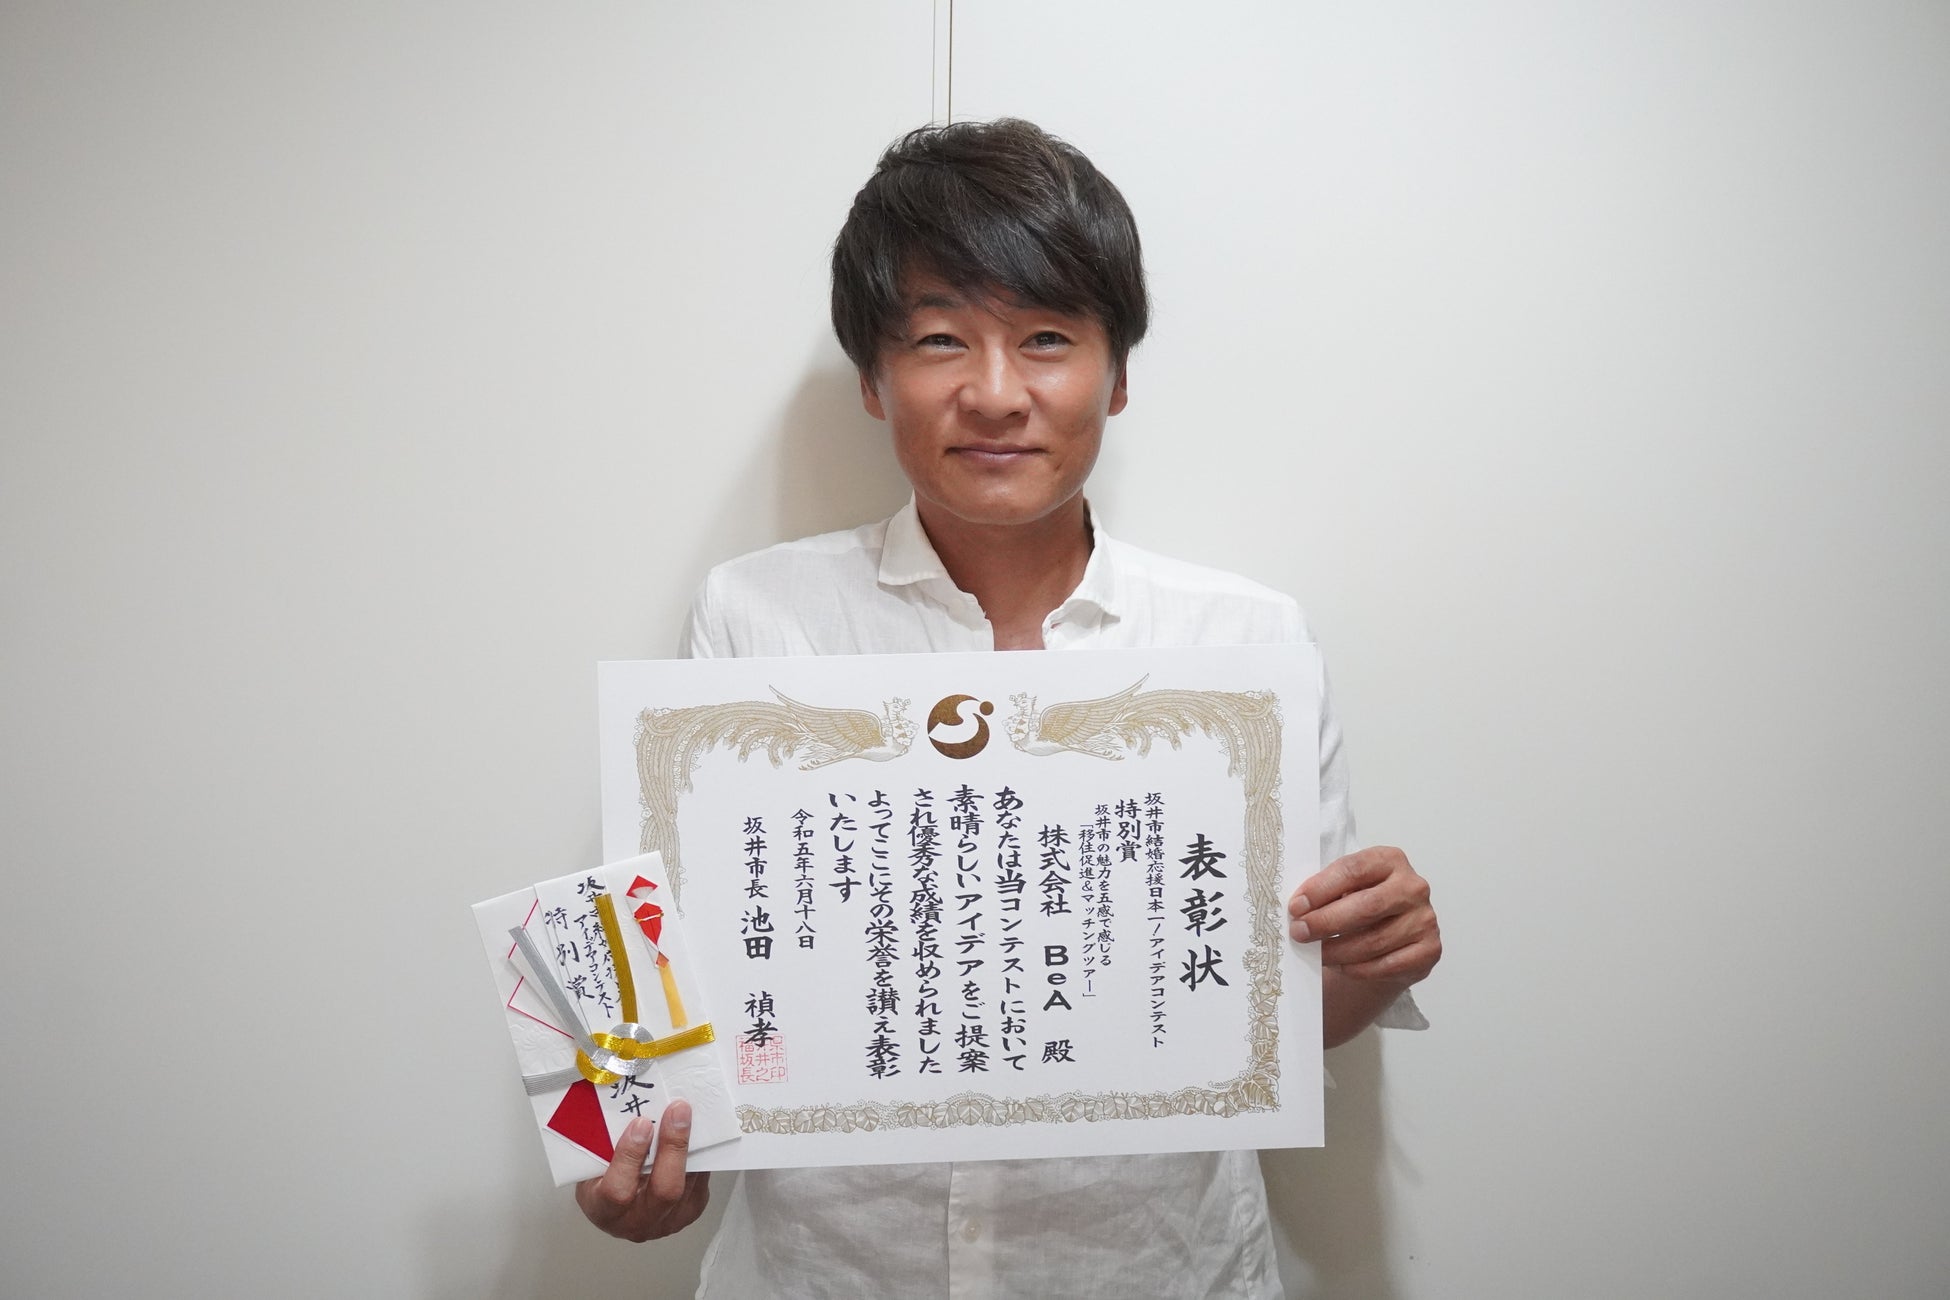 表彰状
坂井市結婚応援日本一！アイデアコンテスト
特別賞
坂井市の魅力を五感で感じる
「移住促進＆マッチングツアー」
株式会社 BeA 殿
あなたは当コンテストにおいて
素晴らしいアイデアをご提案
され優秀な成績を収められました
よってここにその栄誉を讃え表彰
いたします
令和五年六月十八日
坂井市長 池田 禎孝
アイデアコンテスト
特別賞
坂井